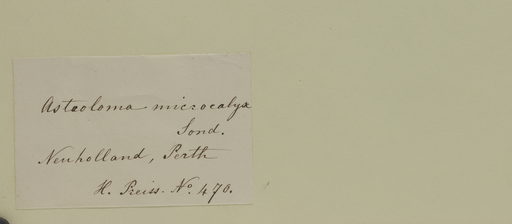 Astroloma microcalyx
Sond.
Neuholland, Perth
H. Preiss. No. 470.